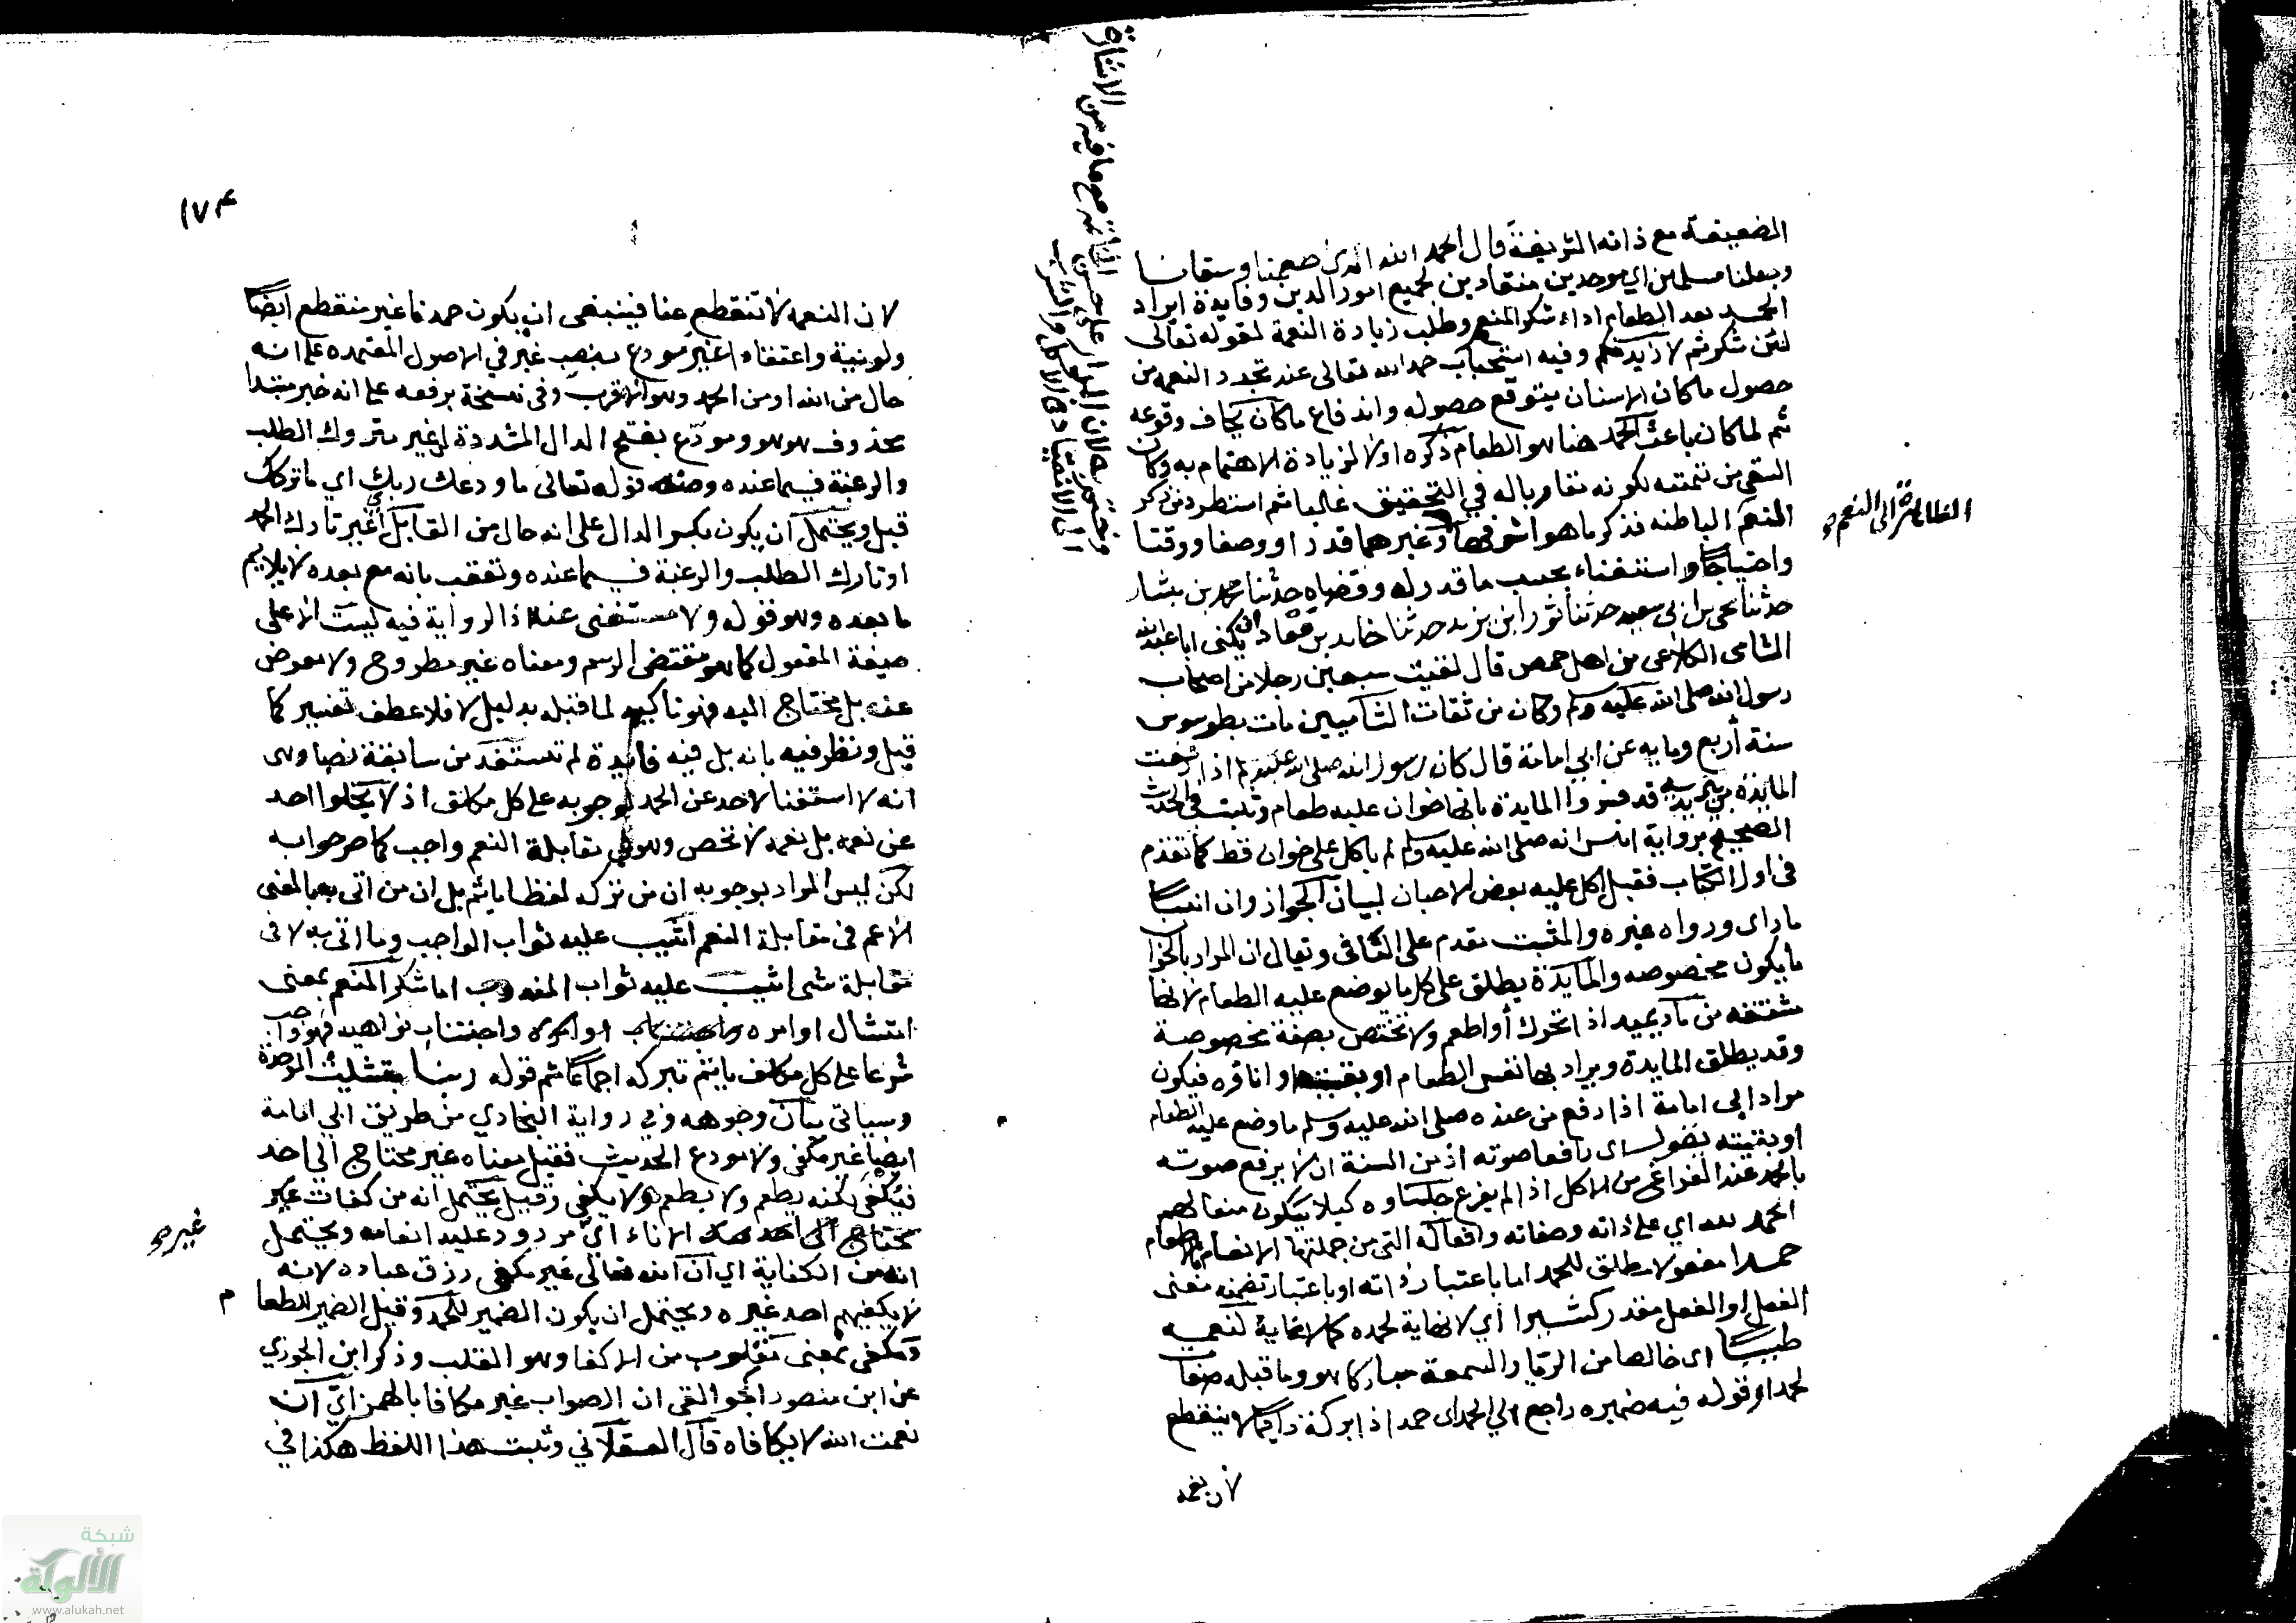 الضعيفة مع ذاته الشريفة قال الحمد لله الذي اطعمنا وسقانا
وجعلنا مسلمين اي موحدين منقادين لجميع امور الدين وفايدة ايراد
الحمد بعد الطعام اداء شكر المنعم وطلب زيادة النعمة لقوله تعالى
لئن شكرتم لازيدنكم وفيه استحباب حمد الله تعالى عند تجدد النعمة من
حصول ما كان الانسان يتوقع حصوله واندفاع ما كان يخاف وقوعه
ثم لما كان باعث الحمد هنا هو الطعام ذكره اولا لزيادة الاهتمام به وكان
السقي من تتمته لكونه مقارنا له في التحقيق غالبا ثم استطرد من ذكر
النعم الظاهرة الى النعم
النعم الباطنه فذكر ما هو اشرفها وغيرهما قدرا ووصفا ووقتا
واحتياجا واستغناء بحسب ما قدر له وقضاه حدثنا محمد بن بشار
حدثنا يحيى بن سعيد حدثنا ثور ابن يزيد حدثنا خالد بن معدان يكنى ابا عبد الله
الشامي الكلاعي من اهل حمص قال لقيت سبعين رجلا من اصحاب
رسول الله صلى الله عليه وسلم وكان من ثقات الشاميين مات بطرسوس
سنة أربع ومايه عن ابي امامة قال كان رسول الله صلى الله عليه وسلم اذا رفعت
المايدة من بين يديه قد فسروا المايدة بانها خوان عليه طعام وثبت في الحديث
الصحيح برواية انس انه صلى الله عليه وسلم لم ياكل على خوان قط كما تقدم
في اول الكتاب فقيل اكل عليه بعض الاحيان لبيان الجواز وان انسا
ما راى ورواه غيره والمثبت مقدم على النافي ويقال ان المراد بالخوان
ما يكون مخصوصه والمايدة يطلق على كل ما يوضع عليه الطعام لانها
مشتقه من ماد يميد اذا تحرك أو اطعم ولا تختص بصفة مخصوصة
وقد يطلق المايدة ويراد بها نفس الطعام او بقيته او اناؤه فيكون
مراد ابي امامة اذا رفع من عنده صلى الله عليه وسلم ما وضع عليه الطعام
او بقيته يقول اي رافعا صوته اذ من السنة ان لا يرفع صوته
بالحمد عند الفراغ من الاكل اذا لم يفرغ جلساوه كيلا يكون منعا لهم
الحمد لله اي على ذاته وصفاته وافعاله التي من جملتها الانعام بالاطعام
حمدا مفعول مطلق للحمد اما باعتبار ذاته او باعتبار تضمنه معنى
الفعل او الفعل مقدر كثيرا أي لا نهاية لحمده كما لا غاية لنعمه
طيبا اي خالصا من الريا والسمعة مباركا هو وما قبله صفات
لحمدا وقوله فيه ضميره راجع الي الحمد اي حمدا ذا بركة دايما لا ينقطع
لان نعمه
١٧٤
لان النعم لا تنقطع عنا فينبغي ان يكون حمدنا غير منقطع ايضا
ولو نية واعتقادا غير مودع بنصب غير في الاصول المعتمده على انه
حال من الله او من الحمد وهو الاقرب وفي نسخة برفعه على انه خبر مبتدا
محذوف هو هو ومودع بفتح الدال المشددة اي غير متروك الطلب
والرغبة فيما عنده ومنه قوله تعالى ما ودعك ربك اي ما تركك
قيل ويحتمل ان يكون بكسر الدال على انه حال من القايل أي غير تارك الحمد
او تارك الطلب والرغبة فيما عنده وتعقب بانه مع بعده لا يلايم
ما بعده وهو قوله ولا مستغنى عنه اذ الرواية فيه ليست الا على
صيغة المفعول كما هو مقتضى الرسم ومعناه غير مطروح ولا معرض
عنه بل محتاج اليه فهو تاكيد لما قبله بدليل لا فلا عطف تفسير كما
قيل ونظر فيه بانه بل فيه فايدة لم تستفد من سابقة نصا وهي
انه لا استغنا لاحد عن الحمد لوجوبه على كل مكلف اذ لا يخلوا احد
عن نعمه بل نعمه لا تحصى وهو في مقابلة النعم واجب كما صرحوا به
لكن ليس المراد بوجوبه ان من تركه لفظا ياثم بل ان من اتى به بالمعنى
الاعم في مقابلة النعم اثيب عليه ثواب الواجب وما اتى به لا في
مقابلة شى اثيب عليه ثواب المندوب اما شكر المنعم بمعنى
امتثال اوامره واجتناب نواهيه فهو واجب
شرعا على كل مكلف ياثم بتركه اجماعا ثم قوله ربنا بتثليث الموحدة
وسياتي بيان وجوهه وفي رواية البخاري من طريق ابي امامة
ايضا غير مكفي ولا مودع الحديث فقيل معناه غير محتاج الي احد
فيكفى لكنه يطعم ولا يطعم ولا يكفي وقيل يحتمل انه من كفات
محتاج الى احد الاناء اي مردود عليه انعامه ويحتمل
انه من الكفاية اي ان الله تعالى غير مكفي رزق عباده لانه
لا يكفيهم احد غيره ويحتمل ان يكون الضمير للحمد وقيل الضمير للطعام
ومكفي بمعنى مقلوب من الاكفا وهو القلب وذكر ابن الجوزي
عن ابن منصور الجواليقي ان الصواب غير مكافا بالهمز اي ان
نعمت الله لا يكافاه قال العسقلاني وثبت هذا اللفظ هكذا في
شبكة
الألوكة
www.alukah.net